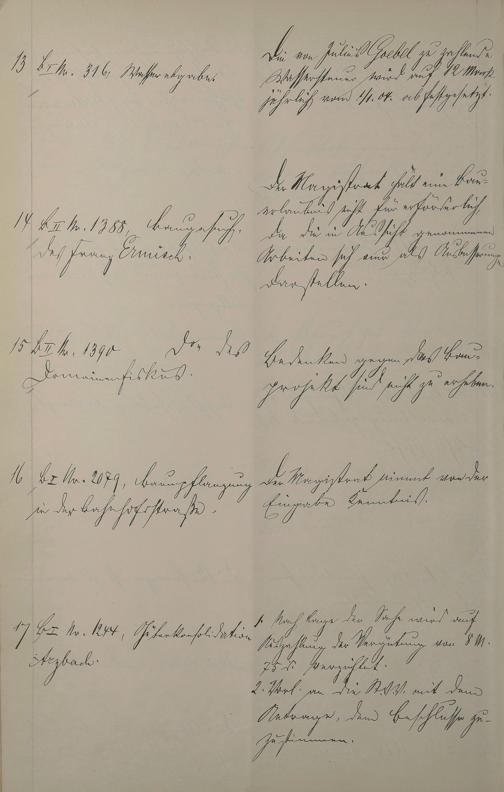 13 B I Nr. 316, Wasserabgabe.
Die von Julius Goebel zu zahlende
Wassersteuer wird auf 12 Mark
jährlich vom 1/1. 04. ab festgesetzt.
14 B II Nr. 1388, Baugesuch
des Franz Ermisch.
Der Magistrat hält eine Bau-
erlaubnis nicht für erforderlich,
da die in Aussicht genommenen
Arbeiten sich nur als Ausbesserung
darstellen.
15 B II Nr. 1390 Do des
Domainenfiskus.
Bedenken gegen das Bau-
projekt sind nicht zu erheben.
16 B I Nr. 2079, Baumpflanzung
in der Bahnhofstraße.
Der Magistrat nimmt von der
Eingabe Kenntnis.
17 B I Nr. 1244, Güterkonsolidation
Arzbach.
1. Nach Lage der Sache wird auf
Auszahlung der Vergütung von 8 M.
75 verzichtet.
2. Vorl. an die St.V.V. mit dem
Antrage, dem Beschlusse zu-
zustimmen.